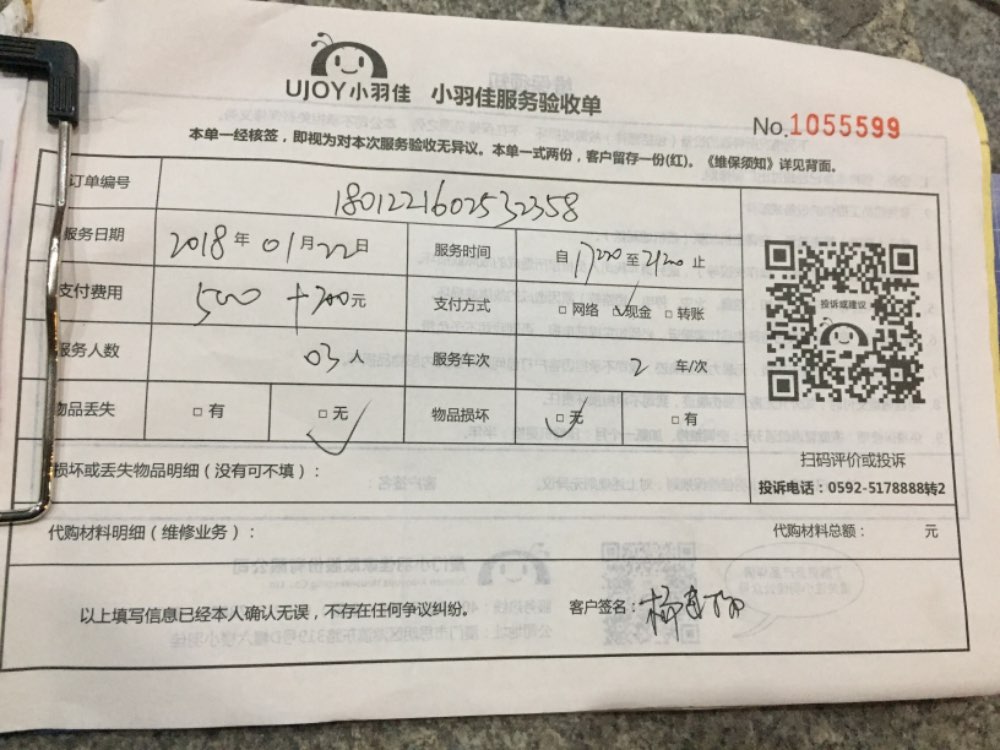 UJOY小羽佳 小羽佳服务验收单
No.1055599
本单一经核签，即视为对本次服务验收无异议。本单一式两份，客户留存一份(红)。《维保须知》详见背面。
订单编号 1801221602532358
服务日期 2018年01月22日 服务时间 自1700至2120止
支付费用 500+700元 支付方式 □网络 ☑现金 □转账
服务人数 03人 服务车次 2 车/次
物品丢失 □有 ☑无 物品损坏 ☑无 □有
投诉或建议
扫码评价或投诉
损坏或丢失物品明细（没有可不填）：
投诉电话：0592-5178888转2
代购材料明细（维修业务）： 代购材料总额： 元
以上填写信息已经本人确认无误，不存在任何争议纠纷。 客户签名：